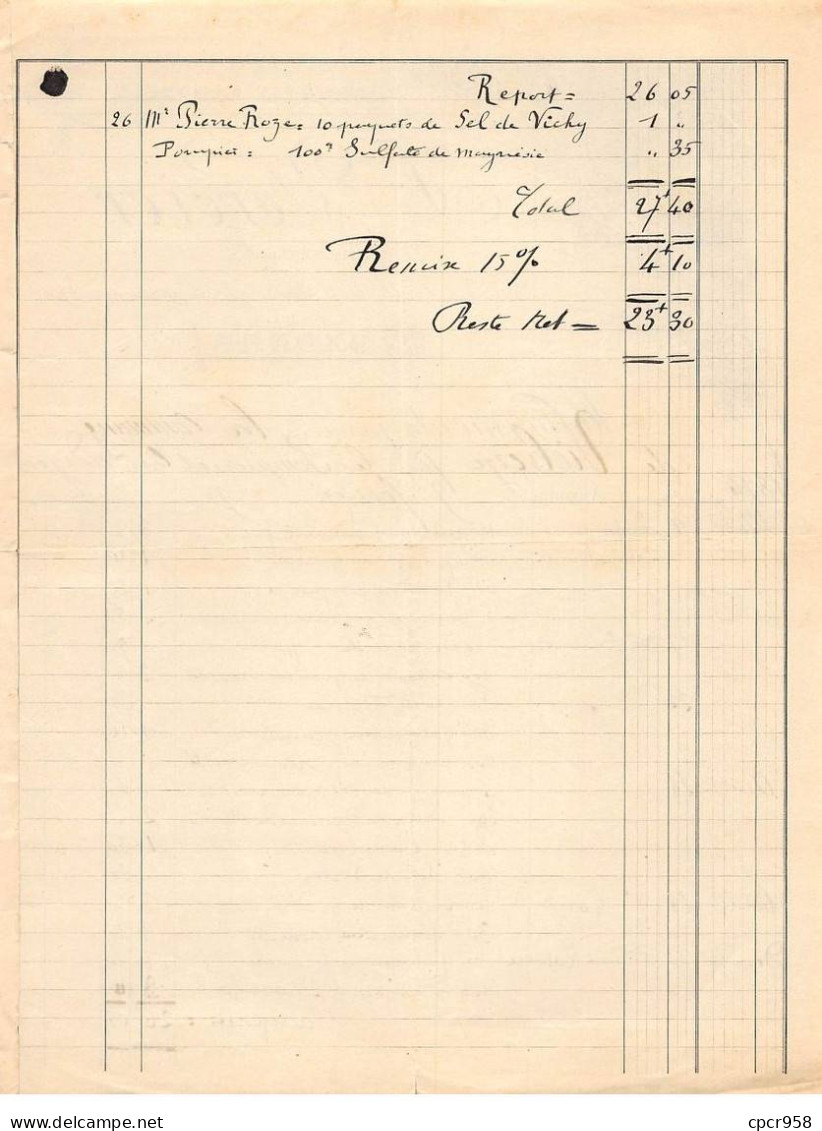 Report = 26 05
26 Mr Pierre Roze = 10 paquets de Sel de Vichy 1 "
Pompier = 100gr Sulfate de Magnésie " 35
Total 27 40
Remise 15% 4 10
Reste Net = 23 30
cpcr958